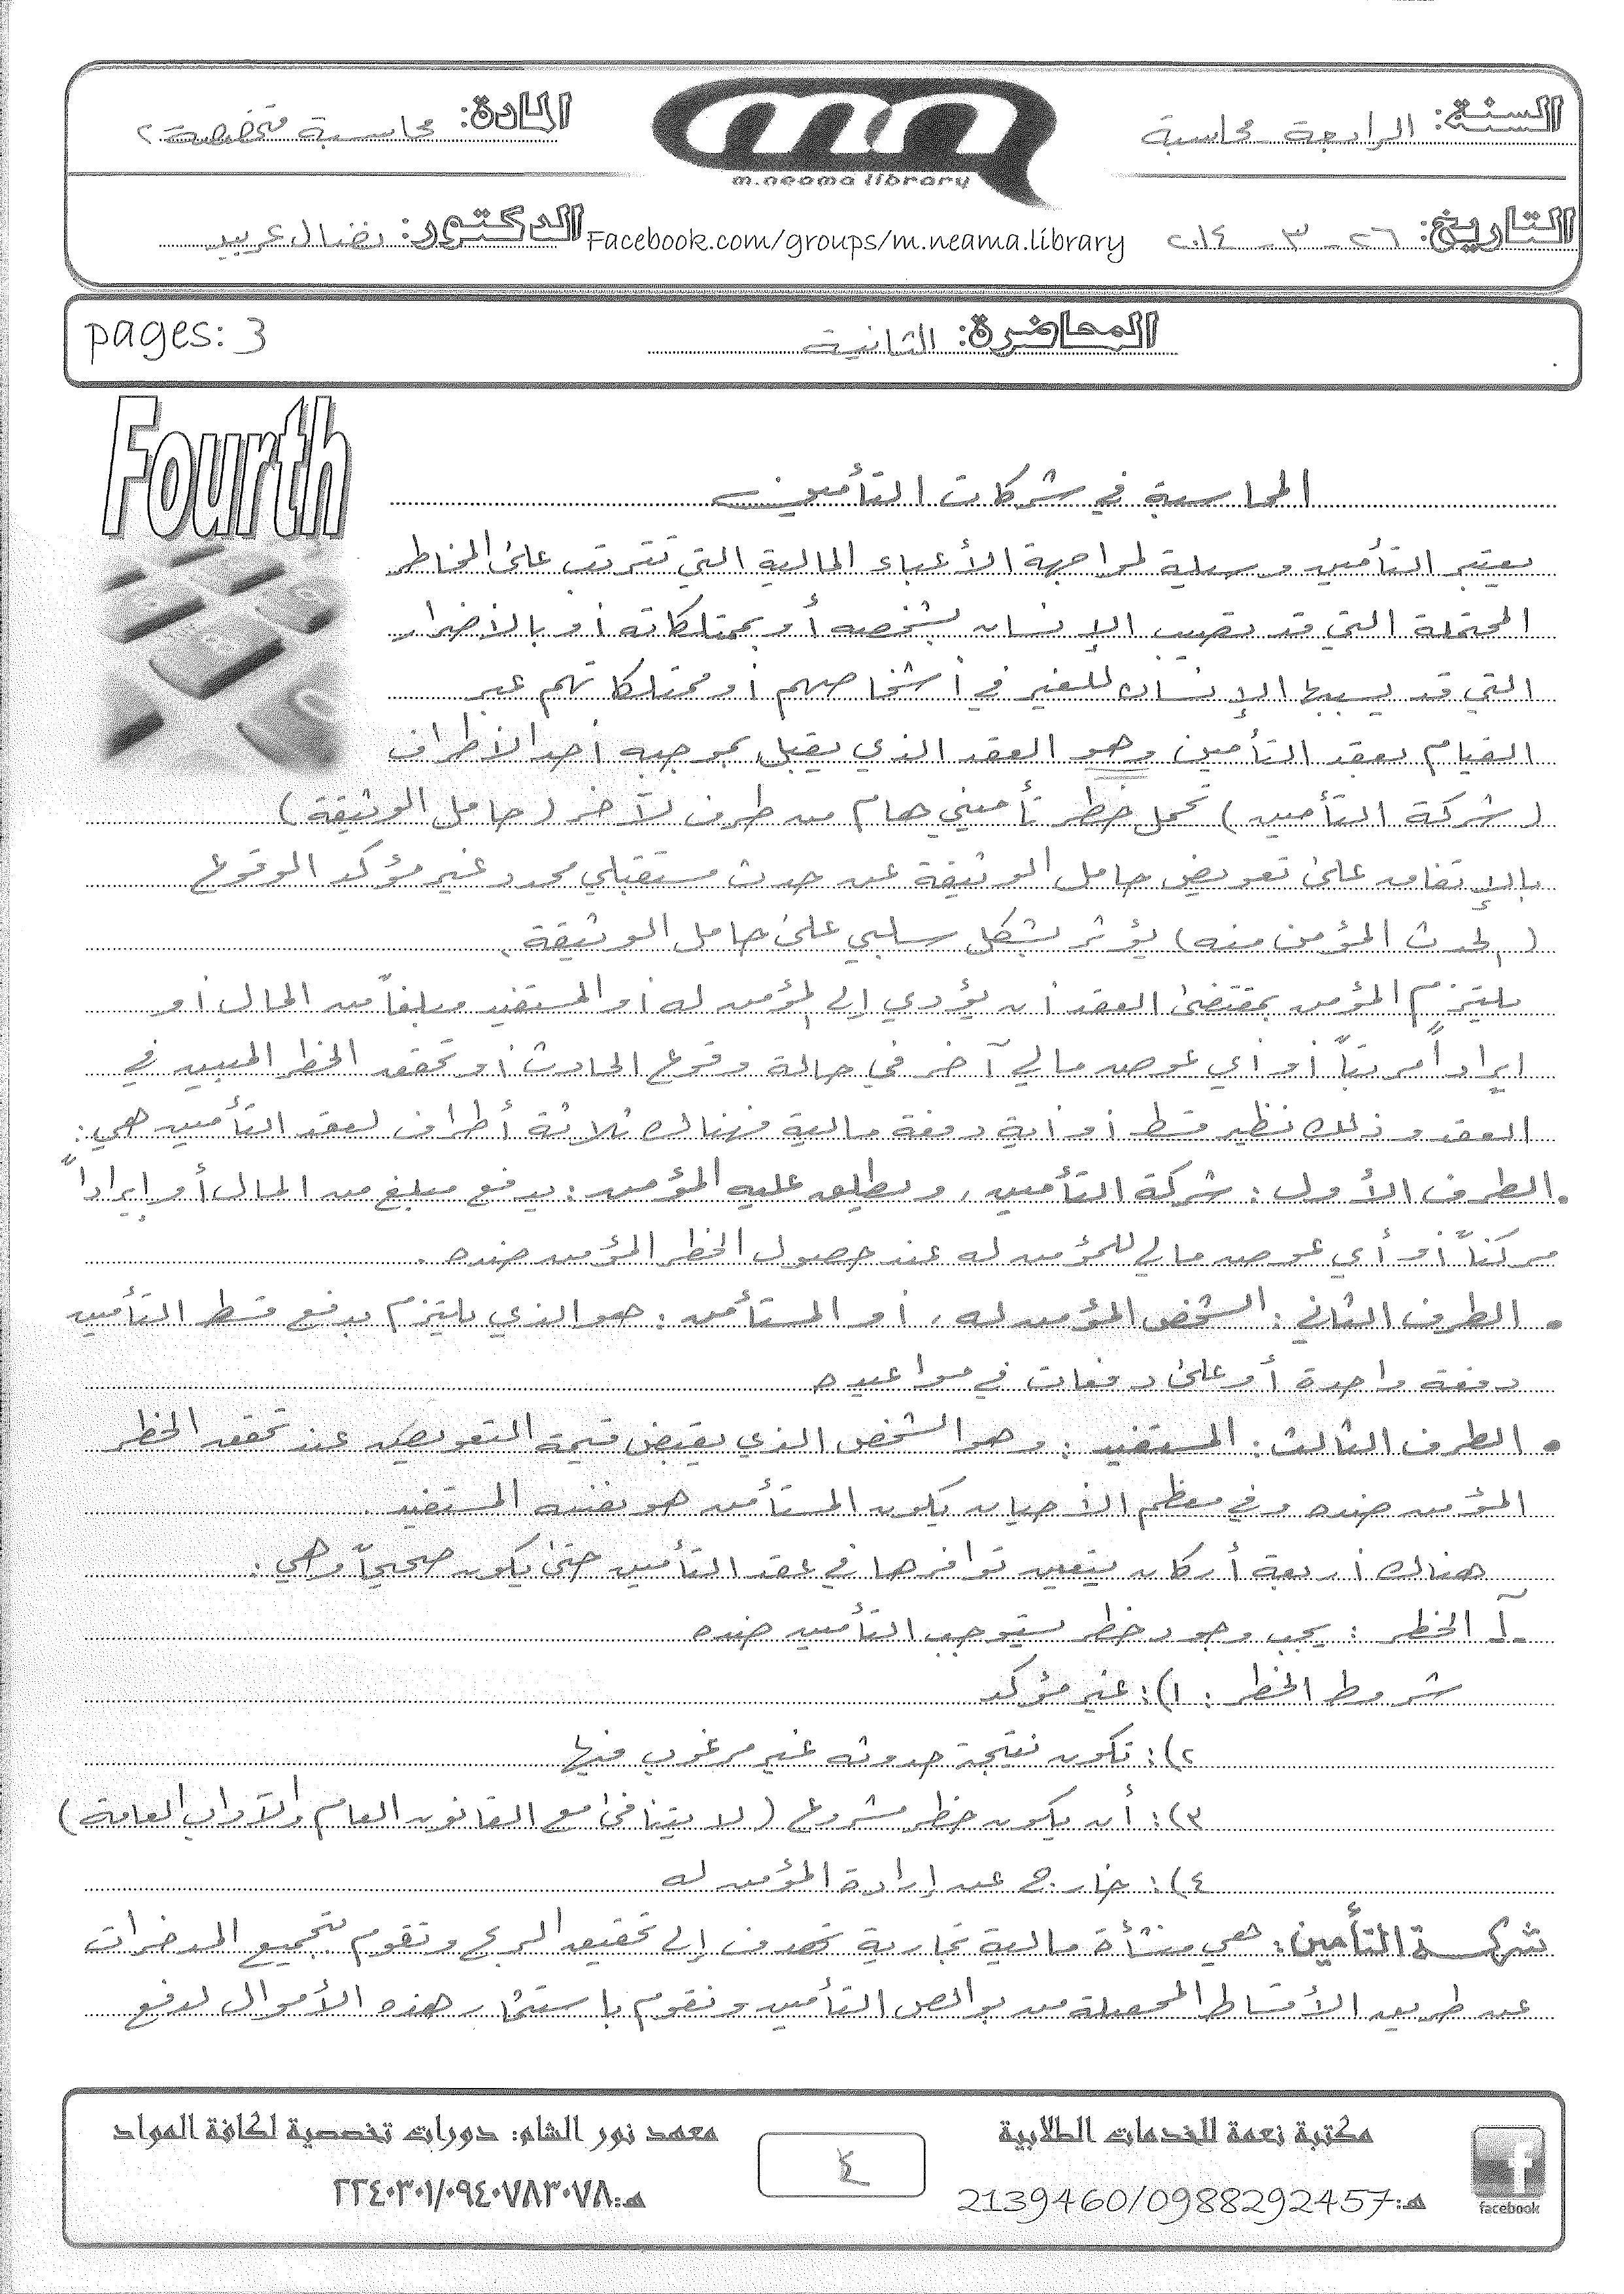 السنة: الرابعة محاسبة
المادة: محاسبة متخصصة ٢
m.neama library
التاريخ: ٢٦ - ٣ - ٢٠١٤
Facebook.com/groups/m.neama.library
الدكتور: نضال عربيد
المحاضرة: الثانية
pages: 3
Fourth
المحاسبة في شركات التأمين
يعتبر التأمين وسيلة لمواجهة الأعباء المالية التي تترتب على المخاطر
المحتملة التي قد تصيب الإنسان بشخصه أو بممتلكاته أو بالأضرار
التي قد يسببها الإنسان للغير في أشخاصهم أو ممتلكاتهم عبر
القيام بعقد التأمين وهو العقد الذي يقبل بموجبه أحد الأطراف
(شركة التأمين) تحمل خطر تأميني هام من طرف لآخر (حامل الوثيقة)
بالإتفاق على تعويض حامل الوثيقة عن حدث مستقبلي محدد غير مؤكد الوقوع
(الحدث المؤمن منه) يؤثر بشكل سلبي على حامل الوثيقة.
يلتزم المؤمن بمقتضى العقد أن يؤدي إلى المؤمن له أو المستفيد مبلغاً من المال أو
إيراداً مرتباً أو أي عوض مالي آخر في حالة وقوع الحادث أو تحقق الخطر المبين في
العقد وذلك نظير قسط أو أية دفعة مالية فهناك ثلاثة أطراف لعقد التأمين هي:
• الطرف الأول: شركة التأمين، ويطلق عليه المؤمن: يدفع مبلغ من المال أو إيراداً
أو أي عوض مالي للمؤمن له عند حصول الخطر المؤمن ضده.
• الطرف الثاني: الشخص المؤمن له، أو المستأمن: هو الذي يلتزم بدفع قسط التأمين
دفعة واحدة أو على دفعات في مواعيده
• الطرف الثالث: المستفيد: وهو الشخص الذي يقبض قيمة التعويض عند تحقق الخطر
المؤمن ضده وفي معظم الأحيان يكون المستأمن هو نفسه المستفيد.
هناك أربعة أركان يتعين توافرها في عقد التأمين حتى يكون صحيحاً وهي:
١- الخطر: يجب وجود خطر يستوجب التأمين ضده
شروط الخطر: ١): غير مؤكد
٢): تكون نتيجة حدوثه غير مرغوب فيها
٣): أن يكون خطر مشروع (لا يتنافى مع القانون العام والآداب العامة)
٤): خارج عن إرادة المؤمن له
شركة التأمين: هي منشأة مالية تجارية تهدف إلى تحقيق الربح وتقوم بتجميع المدخرات
عن طريق الأقساط المحصلة من بوالص التأمين وتقوم باستثمار هذه الأموال لدفع
مكتبة نعمة للخدمات الطلابية
هـ:2139460/0988292457
facebook
٤
معهد نور الشام: دورات تخصصية لكافة المواد
هـ:٢٢٤٠٣٠١/٠٩٤٠٧٨٣٠٧٨